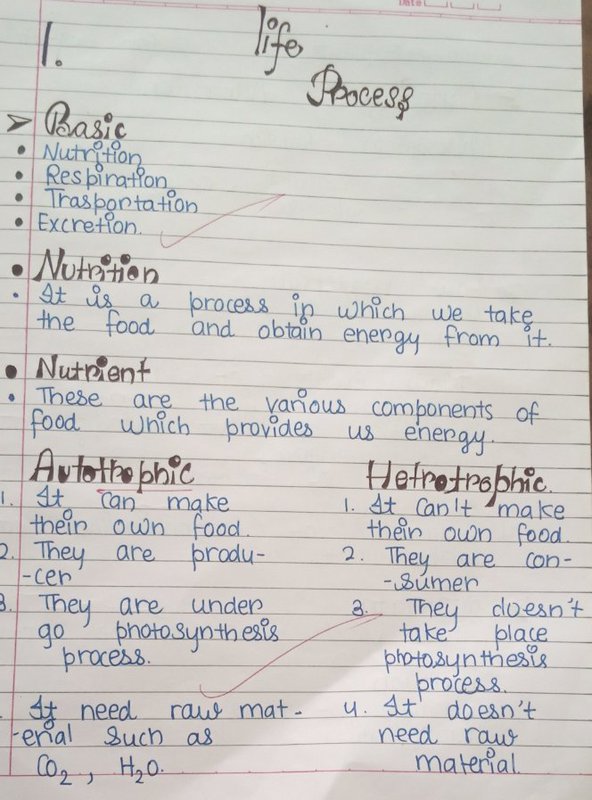 Date
1. life
Process
➢ Basic
• Nutrition
• Respiration
• Trasportation
• Excretion.
• Nutrition
• It is a process in which we take
the food and obtain energy from it.
• Nutrient
• These are the various components of
food which provides us energy.
Autotrophic
1. It can make
their own food.
2. They are produ-
-cer
3. They are under
go photosynthesis
process.
It need raw mat-
-erial such as
CO2, H2O.
Hetrotrophic.
1. It can't make
their own food.
2. They are con-
-sumer
3. They doesn't
take place
photosynthesis
process.
4. It doesn't
need raw
material.